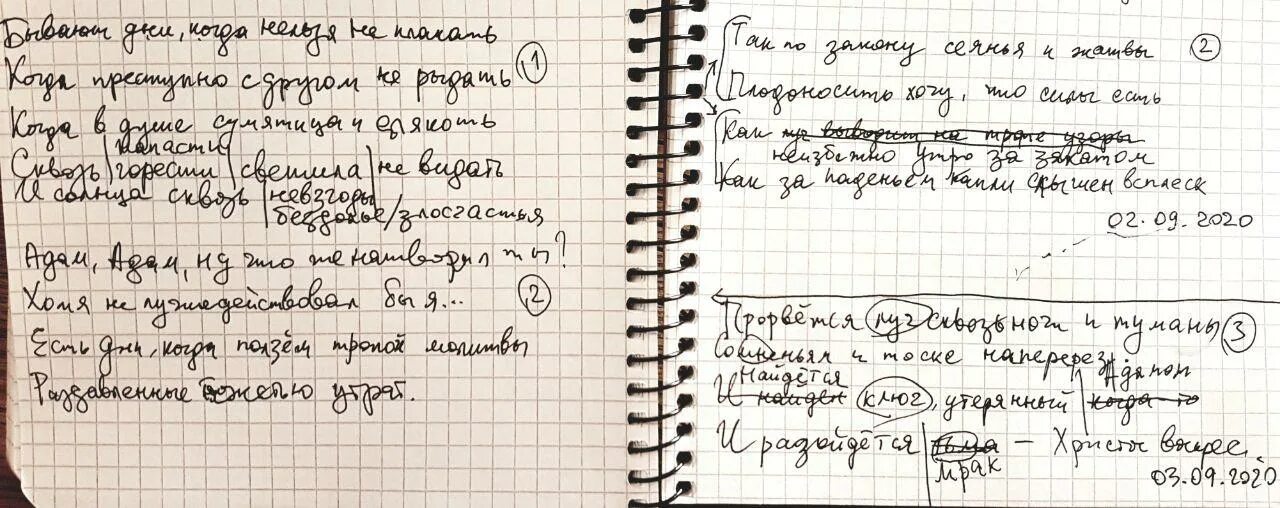 Бывают дни, когда нельзя не плакать
Когда преступно с другом не рыдать
1
Когда в душе сумятица и слякоть
напасти
Сквозь горести светила не видать
И солнца сквозь невзгоды
бездолье/злосчастья
Адам, Адам, ну что же натворил ты?
Хотя не лучше действовал бы я...
2
Есть дни, когда ползём тропой молитвы
Раздавленные тяжестью утрат.
Так по закону сеянья и жатвы
2
Плодоносить хочу, что силы есть
Как луч выводит на тропе узоры
неизбежно утро за закатом
Как за паденьем капли слышен всплеск
02.09.2020
Прорвётся луч сквозь ночи и туманы
3
Сомненьям и тоске наперерез
Найдётся Адамом
И найден ключ, утерянный когда-то
И разойдётся тьма — Христос воскрес.
мрак
03.09.2020